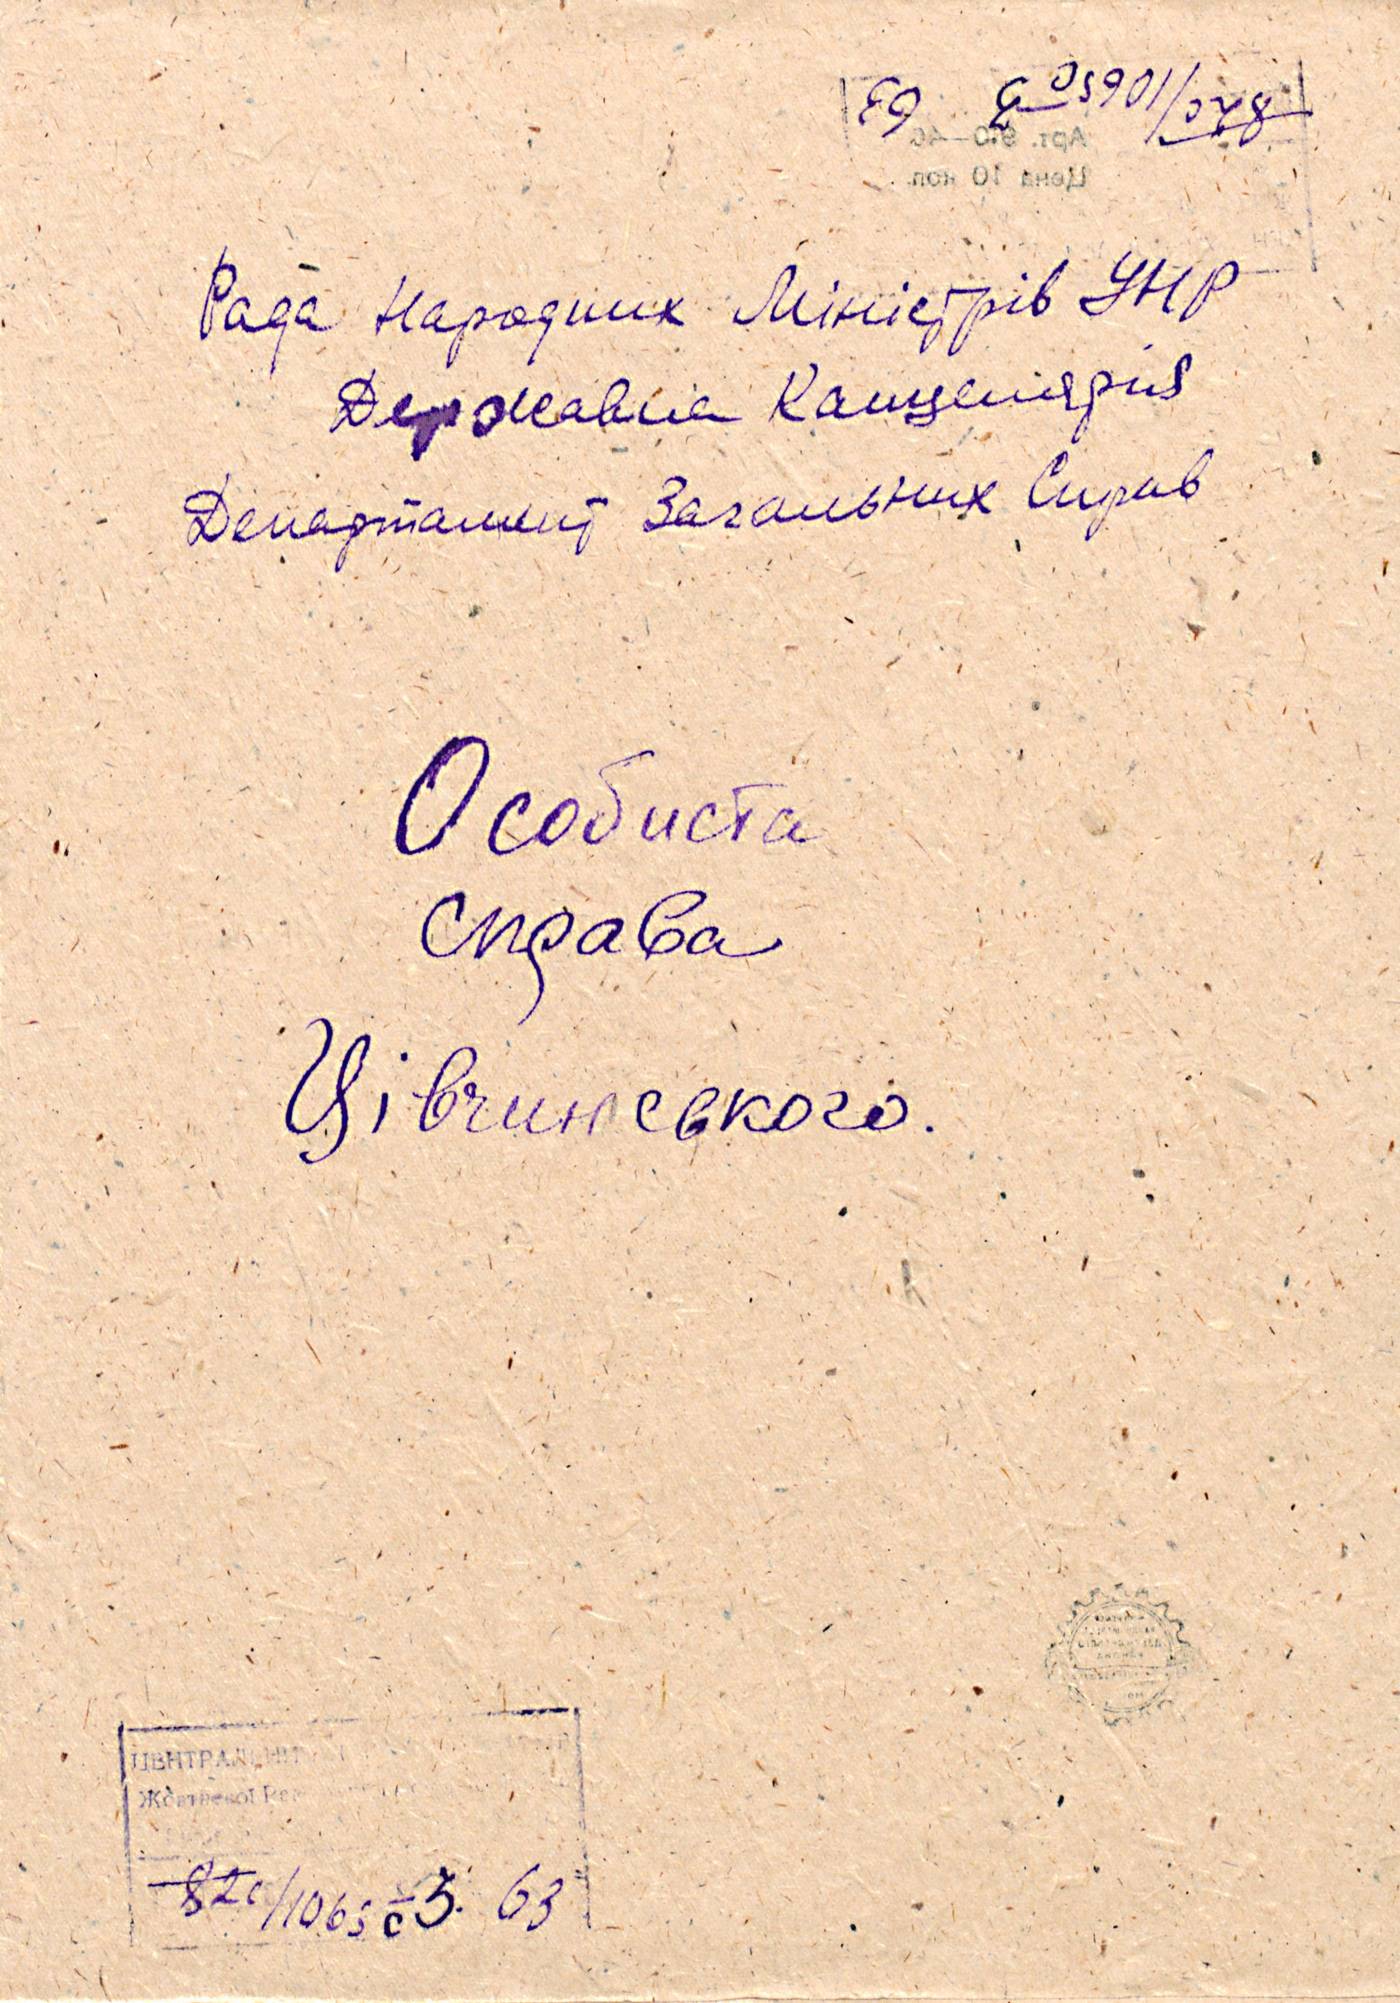 Арт. 9.0—4
Цена 10 коп.
Рада Народних Міністрів УНР
Державна Канцелярія
Департамент Загальних Справ
Особиста
справа
Цівчинського.
ЦЕНТРАЛЬНИ
Жовтневої
1065 с 3. 63